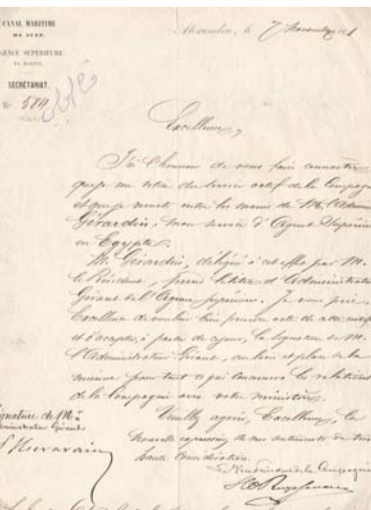 CANAL MARITIME
DE SUEZ.
AGENCE SUPÉRIEURE
SECRÉTARIAT.
N° 574
Alexandrie, le 7 Novembre
Excellence,
J'ai l'honneur de vous faire connaître
que je me retire du service actif de la Compagnie
et que je remets entre les mains de M.
Girardin, mon service d'Agent Supérieur
en Egypte.
M. Girardin, délégué à cet effet par M.
le Président, prend le titre d'Administrateur
Gérant de l'Agence Supérieure. Je vous prie
Excellence de vouloir bien prendre acte de
et d'accepter, à partir de ce jour, la signature de M.
l'Administrateur Gérant, au lieu et place de la
mienne pour tout ce qui concernera les relations
de la Compagnie avec votre ministère.
Veuillez agréer, Excellence, la
nouvelle expression de mes sentiments de très
haute considération.
Signature de M. l'
Administrateur Gérant
de la Compagnie